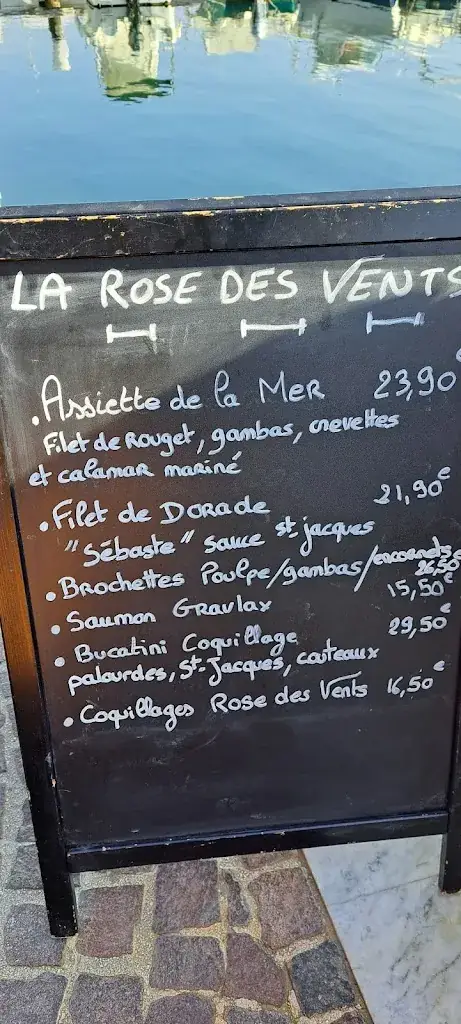 LA ROSE DES VENTS
• Assiette de la MER 23,90€
Filet de Rouget, gambas, crevettes
et calamar mariné
• Filet de DORADE 21,90€
"Sébaste" sauce st-jacques
• Brochettes Poulpe/gambas/encornets 26,50€
• Saumon Gravlax 15,50€
• Bucatini Coquillage 29,50€
palourdes, St-Jacques, couteaux
• Coquillages Rose des Vents 16,50€